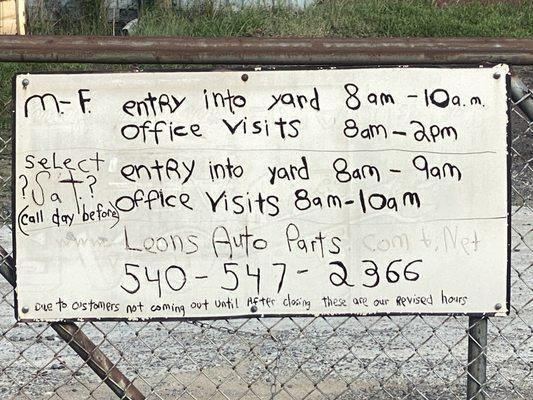 M-F. entry into yard 8am-10a.m.
office visits 8am-2pm
select ?Sat? (call day before)
entry into yard 8am-9am
office visits 8am-10am
www. Leons Auto Parts.com &.Net
540-547-2366
Due to customers not coming out until After closing these are our Revised hours